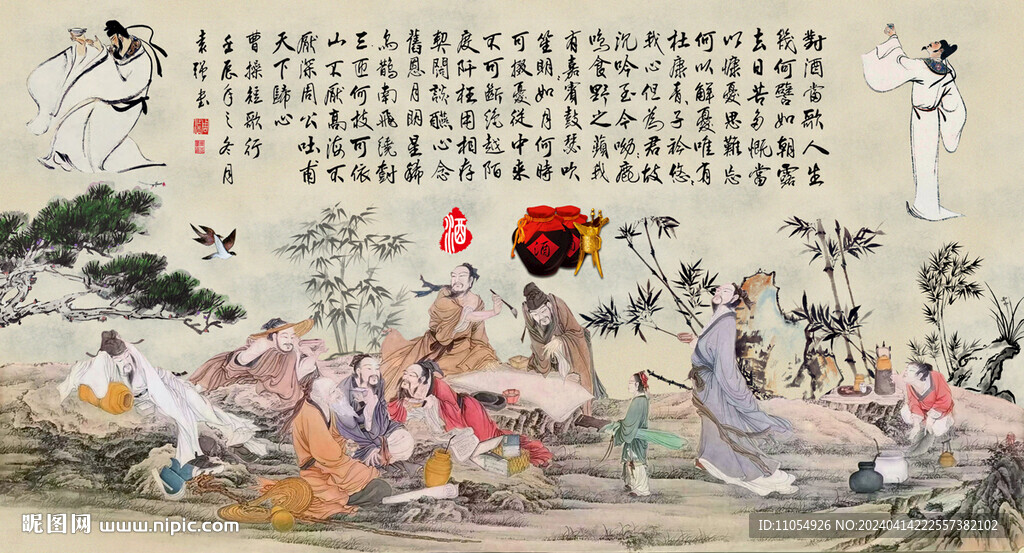 對酒當歌人生
幾何譬如朝露
去日苦多慨當
以慷憂思難忘
何以解憂唯有
杜康青子衿悠
我心但為君故
沉吟至今呦鹿
鳴食野之蘋我
有嘉賓鼓瑟吹
笙明如月何時
可掇憂從中來
不可斷絕越陌
度阡枉用相存
契闊談讌心念
舊恩月明星稀
烏鵲南飛繞對
三匝何枝可依
山不厭高海不
厭深周公吐甫
天下歸心
曹操短歌行
壬辰年之冬月
袁強書
酒
酒
昵图网 www.nipic.com
ID:11054926 NO:20240414222557382102